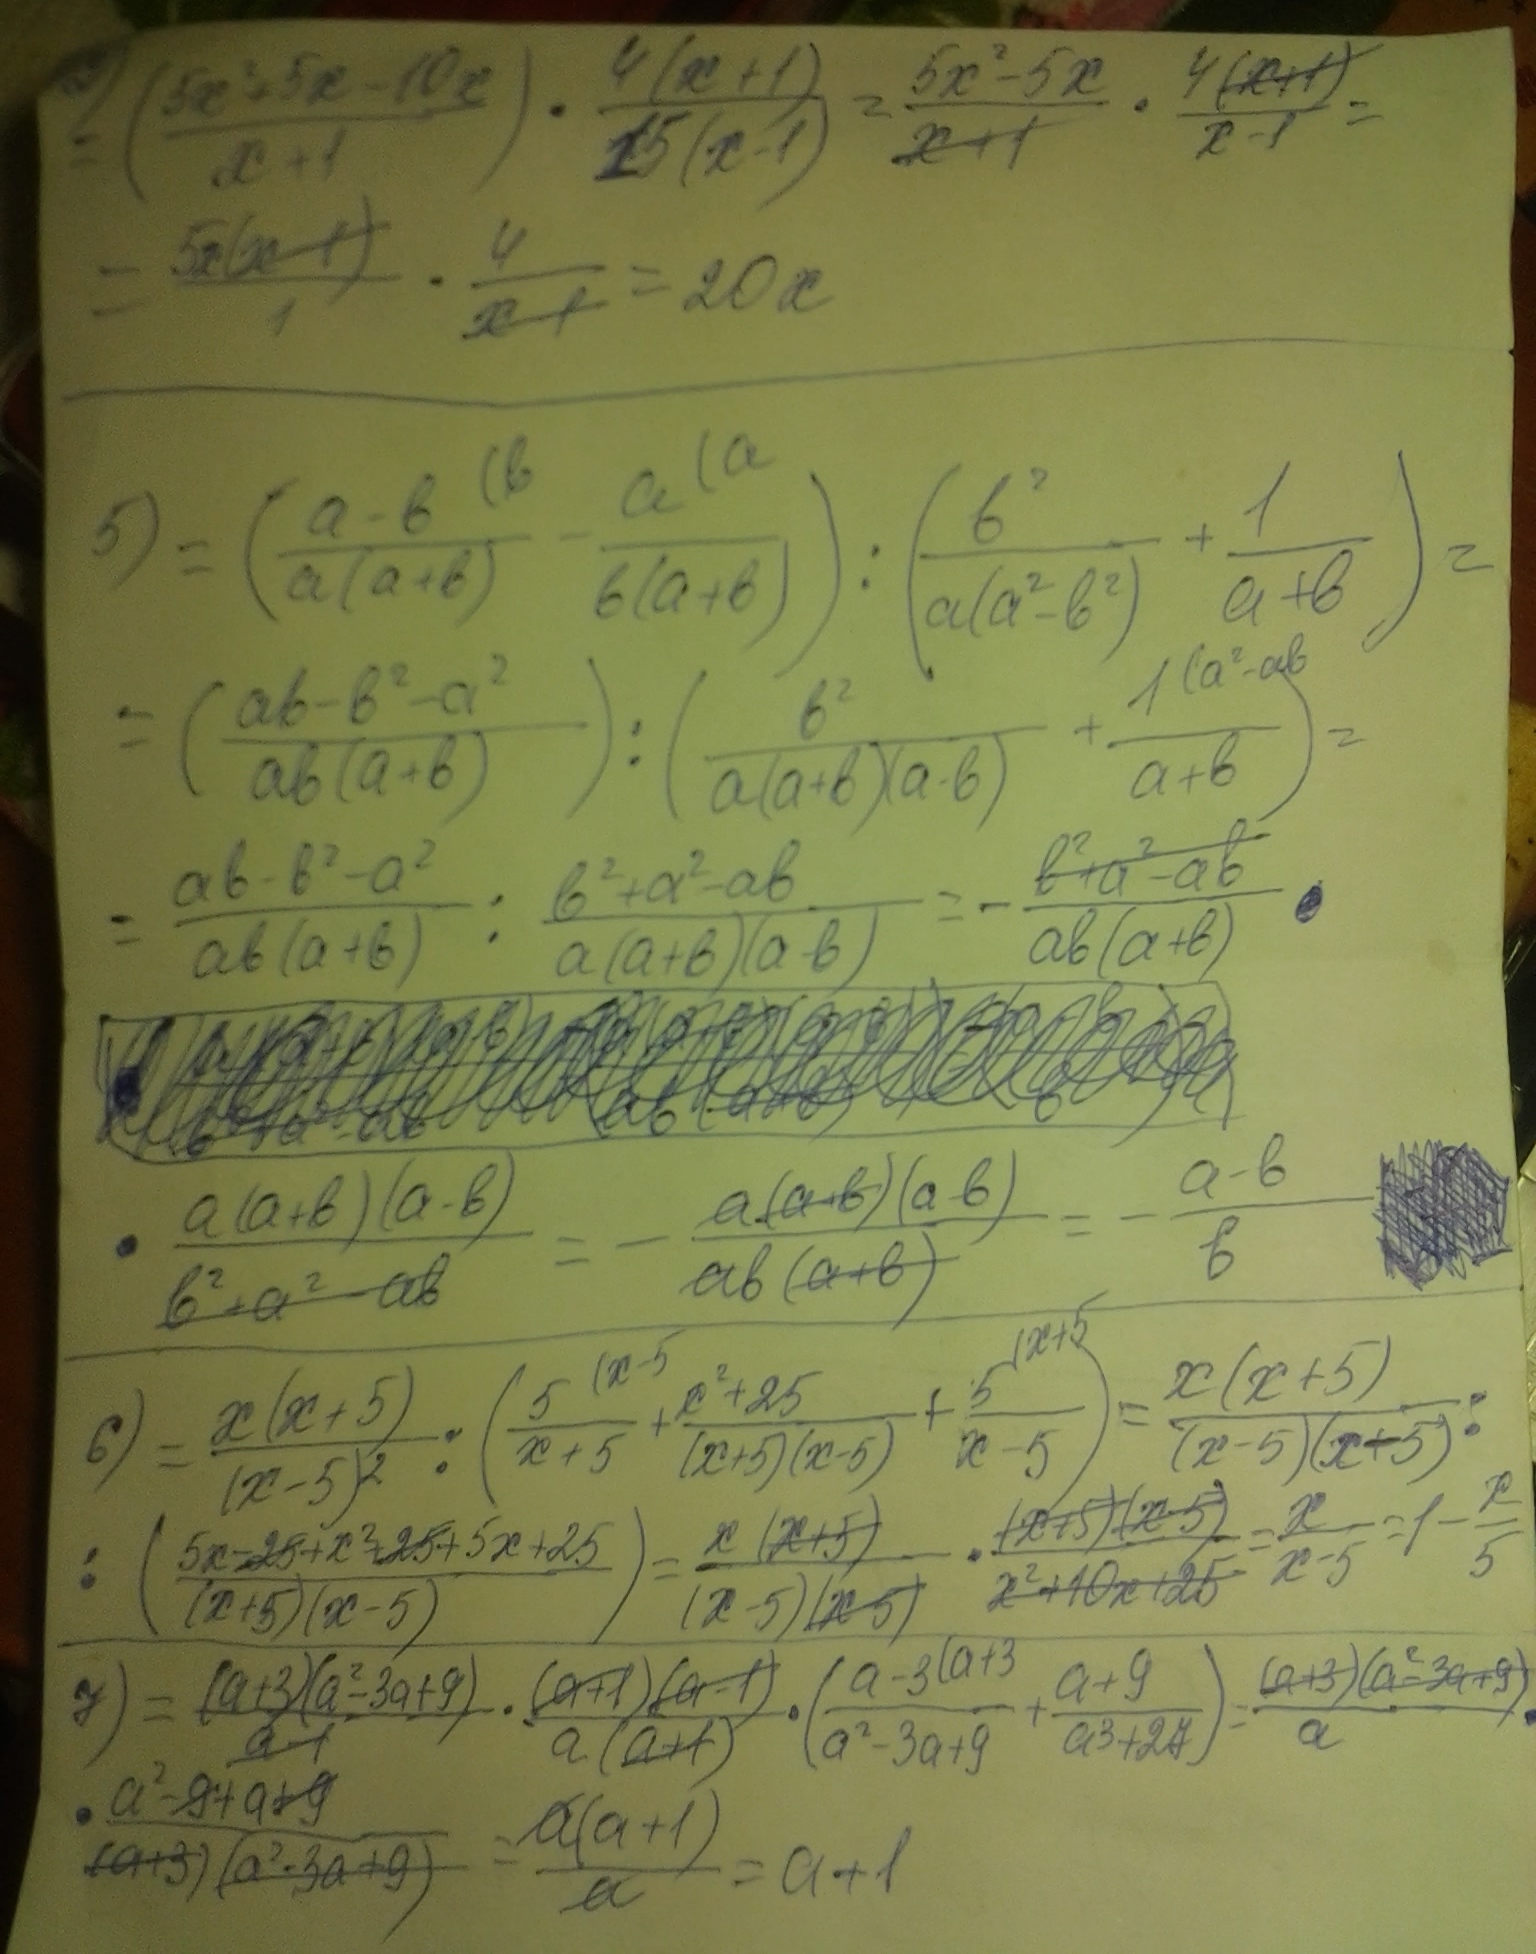 = ((5x²+5x-10x)/(x+1)) · (4(x+1))/(15(x-1)) = (5x²-5x)/(x+1) · (4(x+1))/(x-1) =
= (5x(x-1))/1 · 4/(x-1) = 20x
5) = ((a-b (b)/(a(a+b)) - (a (a)/(b(a+b))) : (b²/(a(a²-b²)) + 1/(a+b)) =
= ((ab-b²-a²)/(ab(a+b))) : (b²/(a(a+b)(a-b)) + (1 (a²-ab)/(a+b)) =
= (ab-b²-a²)/(ab(a+b)) : (b²+a²-ab)/(a(a+b)(a-b)) = - (b²+a²-ab)/(ab(a+b)) ·
· (a(a+b)(a-b))/(b²+a²-ab) = - (a(a+b)(a-b))/(ab(a+b)) = - (a-b)/b
6) = (x(x+5))/((x-5)²) : ((5 (x-5)/(x+5) + (x²+25)/((x+5)(x-5)) + (5 (x+5)/(x-5)) = (x(x+5))/((x-5)(x-5)) :
: ((5x-25+x²+25+5x+25)/((x+5)(x-5))) = (x(x+5))/((x-5)(x-5)) · ((x+5)(x-5))/(x²+10x+25) = x/(x-5) = 1 - x/5
7) = ((a+3)(a²-3a+9))/(a-1) · ((a+1)(a-1))/(a(a+1)) · ((a-3 (a+3)/(a²-3a+9) + (a+9)/(a³+27)) = ((a+3)(a²-3a+9))/a ·
· (a²-9+a+9)/((a+3)(a²-3a+9)) = (a(a+1))/a = a+1